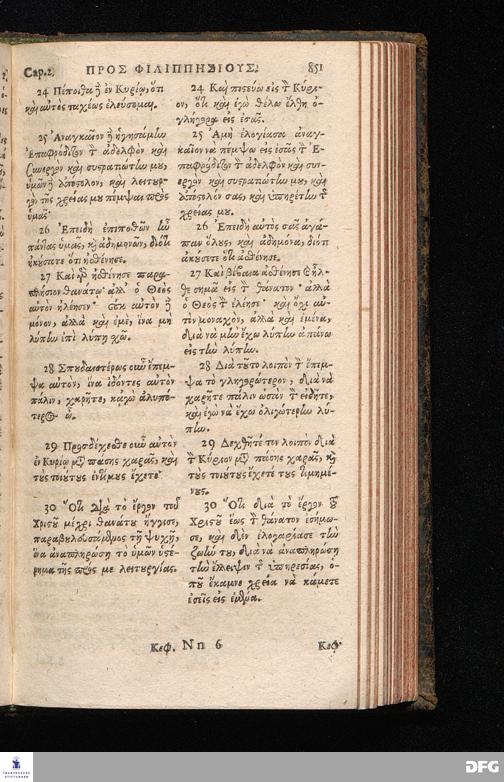 Cap.2. ΠΡΟΣ ΦΙΛΙΠΠΗΣΙΟΥΣ. 851
24 Πέποιθα ἢ ἐν Κυρίῳ, ὅτι
καὶ αὐτὸς ταχέως ἐλεύσομαι.
25 Ἀναγκαῖον ἢ ἡγησάμην
Ἐπαφρόδιτον τ̀ ἀδελφὸν καὶ
συνεργὸν καὶ συστρατιώτην μȣ,
ὑμῶν ἢ ἀπόστολον, καὶ λειτουρ-
γὸν τῆς χρείας μȣ πέμψαι πρὸς
ὑμᾶς·
26 Ἐπειδὴ ἐπιποθῶν ἦν
πάντας ὑμᾶς, καὶ ἀδημονῶν, διότι
ἠκούσατε ὅτι ἠσθένησε.
27 Καὶ γὸ ἠσθένησε παρα-
πλήσιον θανάτῳ· ἀλλ' ὁ Θεὸς
αὐτὸν ἠλέησεν· οὐκ αὐτὸν ἢ
μόνον, ἀλλὰ καὶ ἐμέ, ἵνα μὴ
λύπην ἐπὶ λύπῃ χω.
28 Σπουδαιοτέρως οὖν ἔπεμ-
ψα αὐτὸν, ἵνα ἰδόντες αὐτὸν
πάλιν, χαρῆτε, κἀγὼ ἀλυπό-
τερος ὦ.
29 Προσδέχεσθε οὖν αὐτὸν
ἐν Κυρίῳ μτ̀ πάσης χαρᾶς, καὶ
τȣ̀ς τοιούτȣς ἐντίμȣς ἔχετε·
30 Ὅτι διὰ τὸ ἔργον τοῦ
Χριστȣ̂ μέχρι θανάτȣ ἤγγισε,
παραβȣλȣσάμενος τῇ ψυχῇ,
ἵνα ἀναπληρώσῃ τὸ ὑμῶν ὑστέ-
ρημα τῆς πρὸς με λειτουργίας.
24 Καὶ πιστεύω εἰς τ̀ Κύρι-
ον, ὅτι καὶ ἐγὼ θέλω ἔλθῃ ὀ-
γλήγορα εἰς ἐσᾶς.
25 Ἀμὴ ἐλογίασα ἀναγ-
καῖον νὰ πέμψω εἰς ἐσᾶς τ̀ Ἐ-
παφρόδιτον τ̀ ἀδελφὸν καὶ συν-
εργὸν καὶ συστρατιώτην μȣ, καὶ
ἀπόστολον σας, καὶ ὑπηρέτην τ̂
χρείας μȣ.
26 Ἐπειδὴ αὐτὸς σᾶς ἀγά-
παν ὅλȣς, καὶ ἀδημόνα, διότι
ἀκούσετε ὅτι ἀσθένησε.
27 Καὶ βέβαια ἀσθένησε
θε σημὰ εἰς τ̀ θάνατον· ἀλλὰ
ὁ Θεὸς τ̀ ἐλέησε· καὶ ὄχι αὐ-
τὸν μοναχὸν, ἀλλὰ καὶ ἐμένα,
διὰ νὰ μὴν ἔχω λύπην ἀπάνω
εἰς τὴν λύπην.
28 Διὰ τȣ̂το λοιπὸν τ̀ ἔπεμ-
ψα τὸ γληγορώτερον, διὰ νὰ
χαρῆτε πάλιν ὡσὰν τ̀ εἰδῆτε,
καὶ ἐγὼ νὰ ἔχω ὀλιγώτερην λύ-
πην.
29 Δεχθῆτέ τον λοιπὸν διὰ
τ̀ Κύριον μτ̀ πάσης χαρᾶς, καὶ
τȣ̀ς τοιούτȣς ἔχετέ τȣς τιμημέ-
νȣς.
30 Ὅτι διὰ τὸ ἔργον τȣ̂
Χριστȣ̂ ἕως τ̀ θάνατον ἐσήμω-
σε, καὶ δὲν ἐλογαρίασε τὴν
ζωήν τȣ, διὰ νὰ ἀναπληρώσῃ
τὴν ἔλλειψιν τ̂ ὑπηρεσίας, ὁ-
πȣ̂ ἔκαμνε χρεία νὰ κάμετε
ἐσεῖς εἰς ἐμένα.
Κεφ. Nn 6 Κεφ.
DFG